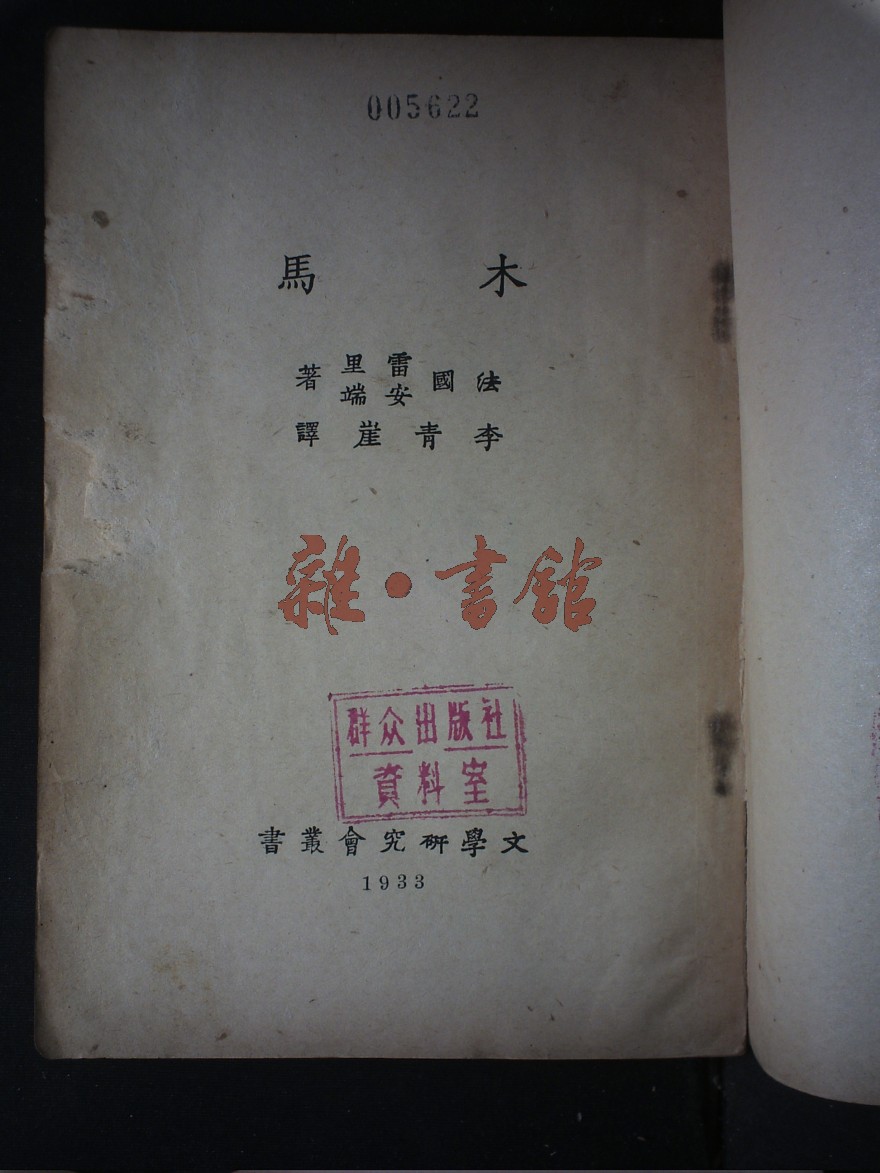 005622
木馬
法國雷里安端著
李青崖譯
雜·書館
群众出版社
資料室
文學研究會叢書
1933